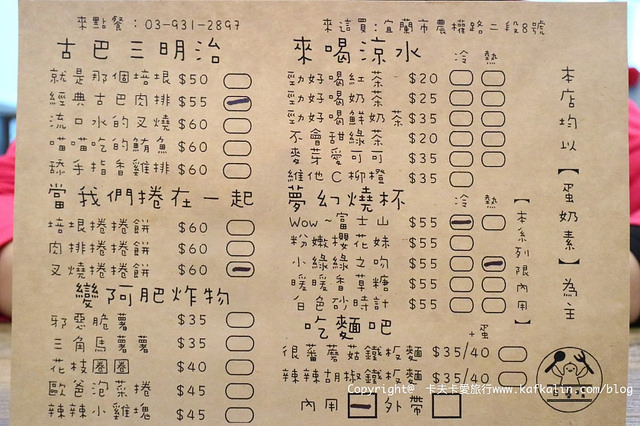 來點餐：03-931-2897
來這買：宜蘭市農權路二段8號
古巴三明治
就是那個培根 $50
經典古巴肉排 $55
流口水的叉燒 $60
喵喵吃的鮪魚 $60
舔手指香雞排 $60
當我們捲在一起
培根捲捲餅 $60
肉排捲捲餅 $60
叉燒捲捲餅 $60
變阿肥炸物
邪惡脆薯 $35
三角馬薯薯 $35
花枝圈圈 $40
歐爸泡菜捲 $45
辣辣小雞塊 $45
來喝涼水 冷 熱
勁好喝紅茶 $20
勁好喝奶茶 $25
勁好喝鮮奶茶 $35
不會甜綠茶 $20
麥芽愛可可 $35
維他C柳橙 $35
夢幻燒杯 冷 熱
Wow~富士山 $55
粉嫩櫻花妹 $55
小綠綠之吻 $55
暖暖香草糖 $55
白色砂時計 $55
【本系列限內用】
吃麵吧 +蛋
很蕃蘑菇鐵板麵 $35/40
辣辣胡椒鐵板麵 $35/40
內用 外帶
本店均以【蛋奶素】為主
Copyright@ 卡夫卡愛旅行www.kafkalin.com/blog